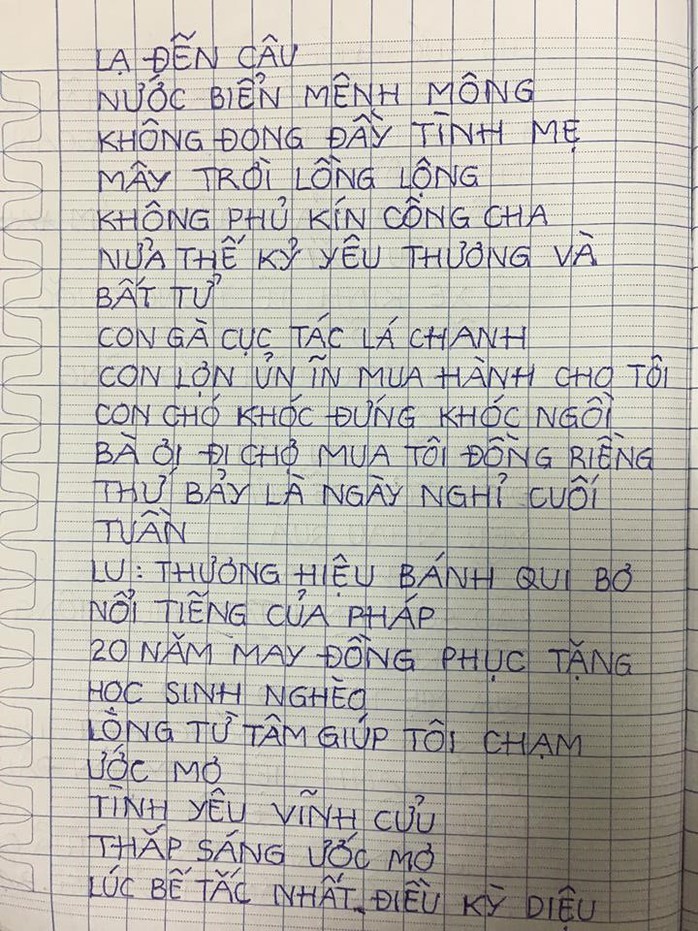 LẠ ĐẾN CÂU
NƯỚC BIỂN MÊNH MÔNG
KHÔNG ĐONG ĐẦY TÌNH MẸ
MÂY TRỜI LỒNG LỘNG
KHÔNG PHỦ KÍN CÔNG CHA
NỬA THẾ KỶ YÊU THƯƠNG VÀ
BẤT TỬ
CON GÀ CỤC TÁC LÁ CHANH
CON LỢN ỦN ĨN MUA HÀNH CHO TÔI
CON CHÓ KHÓC ĐỨNG KHÓC NGỒI
BÀ ƠI ĐI CHỢ MUA TÔI ĐỒNG RIỀNG
THỨ BẢY LÀ NGÀY NGHỈ CUỐI
TUẦN
LU: THƯƠNG HIỆU BÁNH QUI BƠ
NỔI TIẾNG CỦA PHÁP
20 NĂM MAY ĐỒNG PHỤC TẶNG
HỌC SINH NGHÈO
LÒNG TỪ TÂM GIÚP TÔI CHẠM
ƯỚC MƠ
TÌNH YÊU VĨNH CỬU
THẮP SÁNG ƯỚC MƠ
LÚC BẾ TẮC NHẤT. ĐIỀU KỲ DIỆU